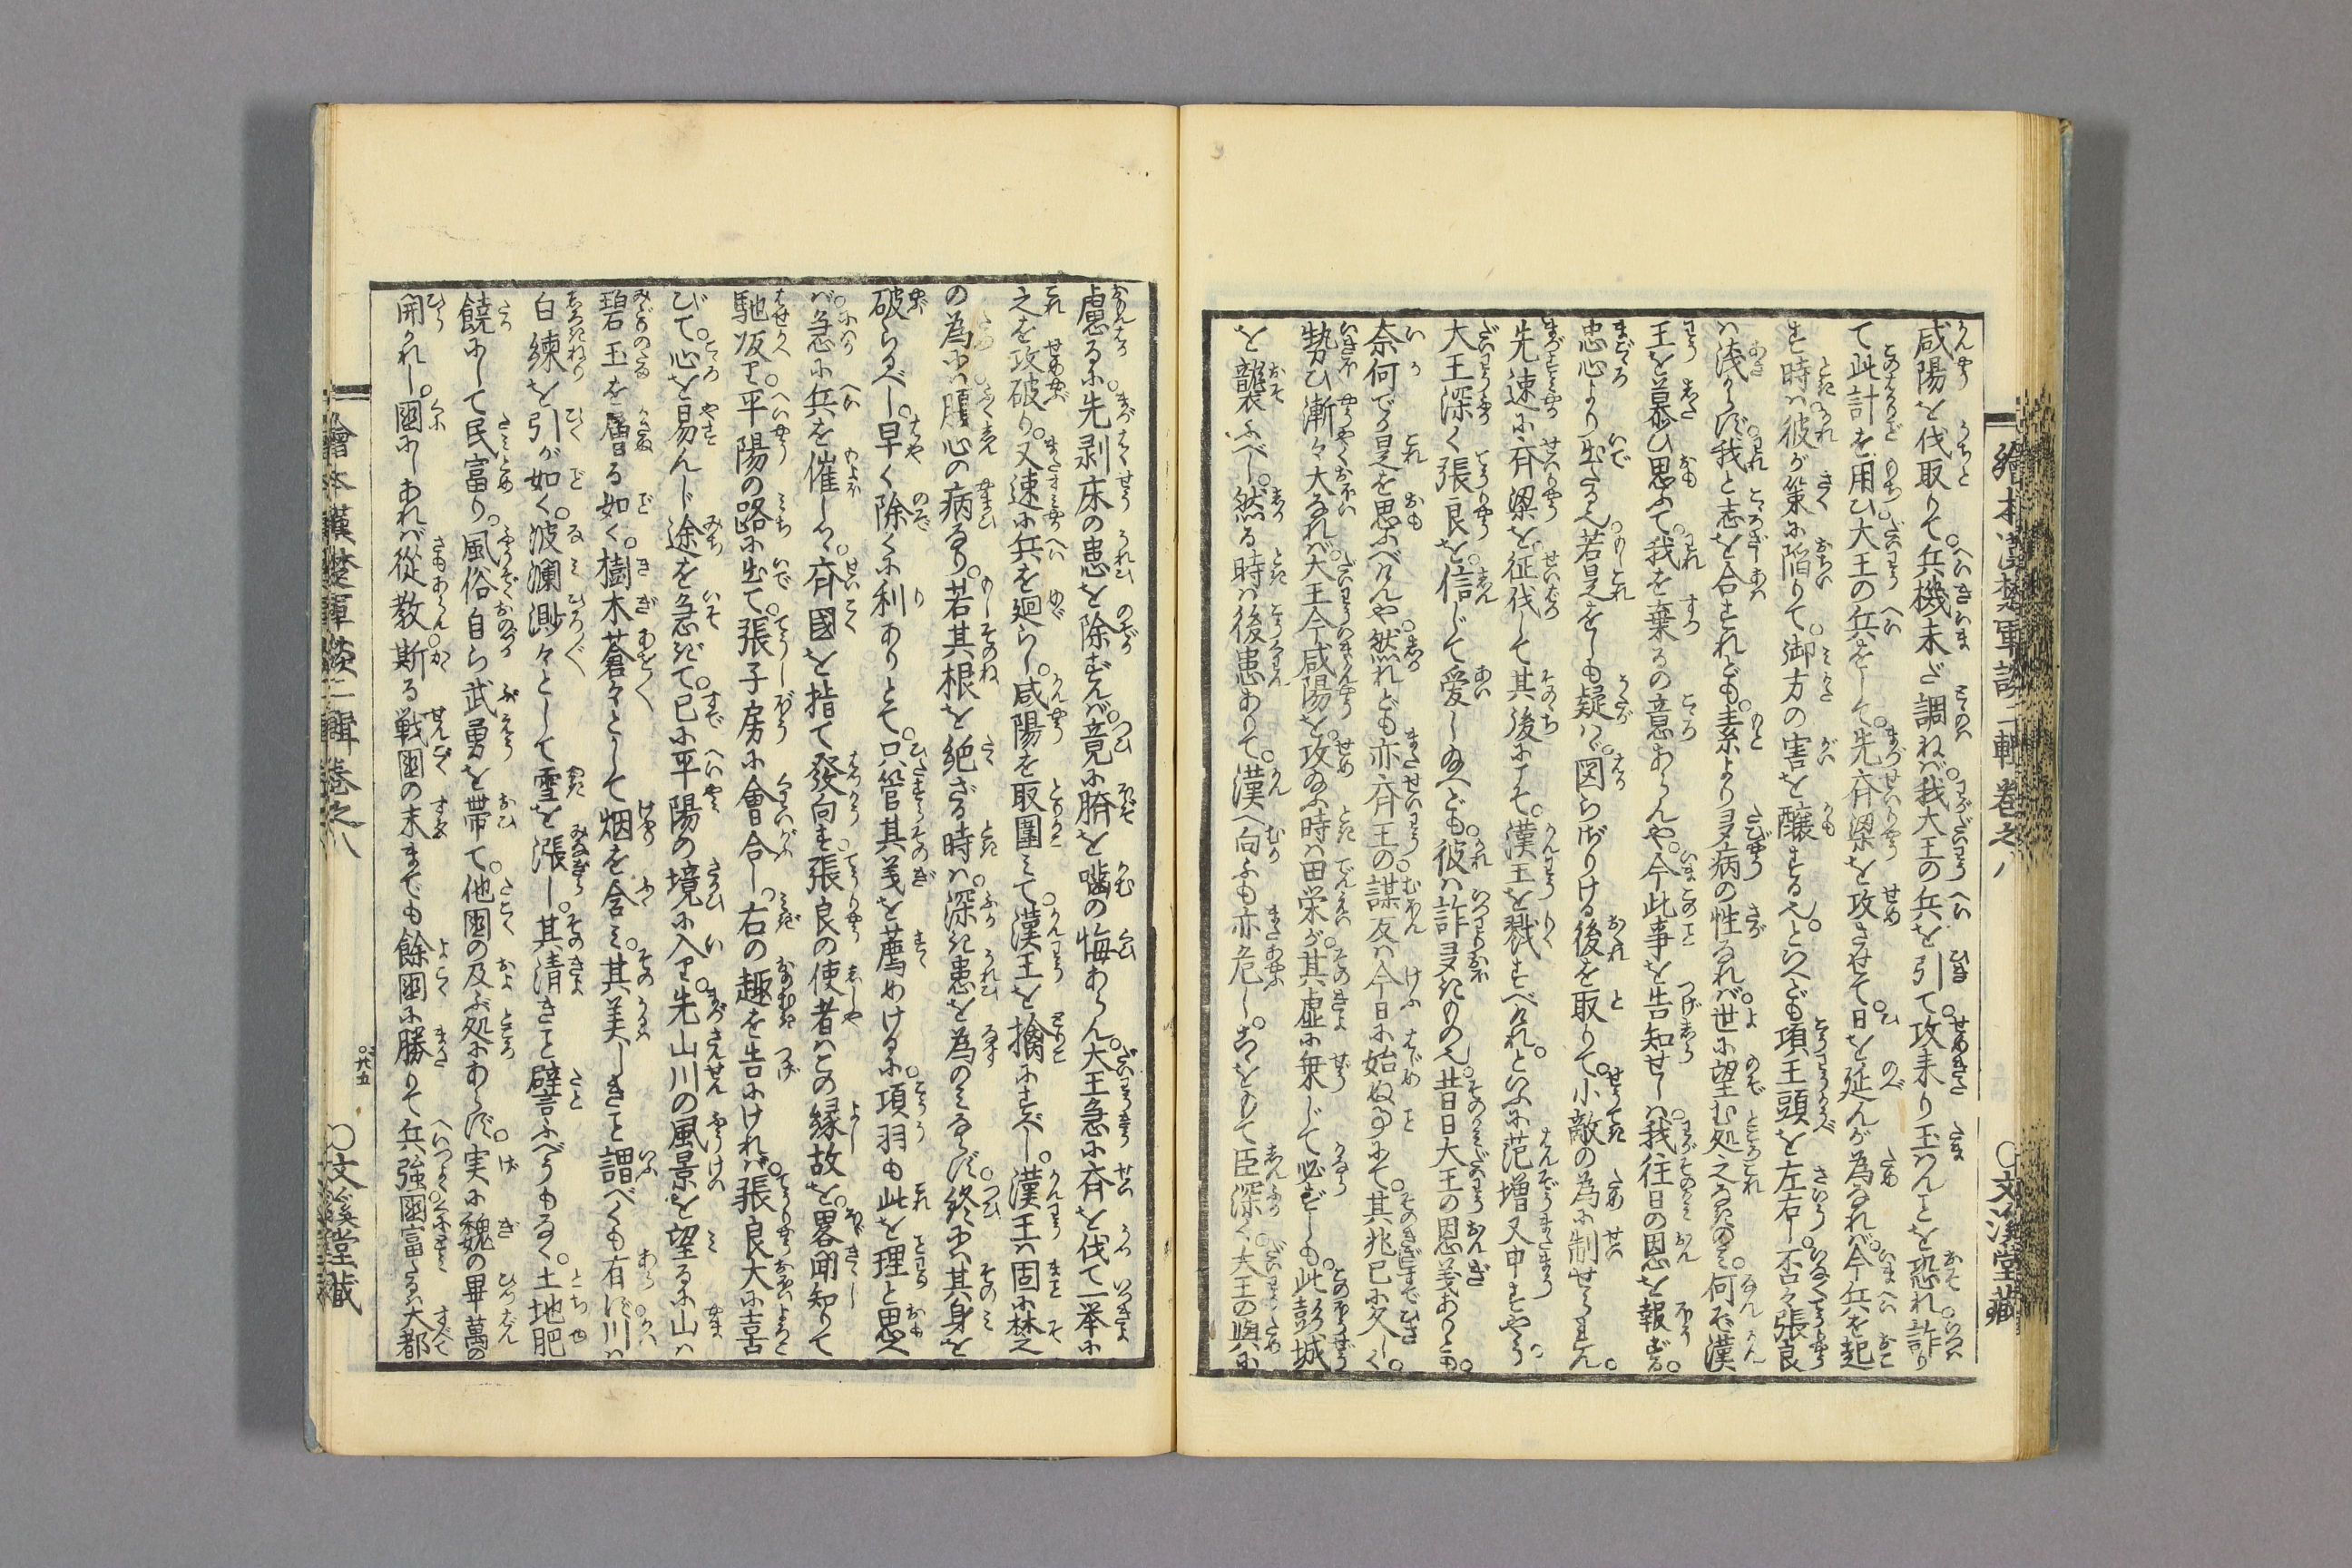 繪本漢楚軍談二輯卷之八
○文溪堂藏
咸陽を伐取りて。兵機未だ調ねば。我大王の兵を引て。攻来り玉はんことを恐れ。詐り
て此計を用ひ。大王の兵をして。先斉梁を攻させて。日を延んが為なれば。今兵を起
す時は。彼が策に陥りて。御方の害を醸するなり。といへども項王頭を左右し。否々張良
は浅からず。我と志を合すれども。素より多病の性なれば。世に望む処之なきのみ。何ぞ漢
王を慕ひ思ふて。我を棄るの意あらんや。今此事を告知せしは。我往日の恩を報ずる。
忠心より出たるなり。若是をしも疑はゞ。図らざりける後を取りて。小敵の為に制せられん。
先速に斉梁を征伐して其後にこそ。漢王を戮すべけれ。といふに范増又申すやう。
大王深く張良を。信じて愛し玉へども。彼は詐多きもの也。昔日大王の恩義ありとも。
奈何でか是を思ふべけんや。然れども亦斉王の。謀反は今日に始ぬ事にて。其兆已に久しく。
勢ひ漸々大なれば。大王今咸陽を。攻玉ふ時は田栄が。其虚に乗じて必ずしも。此彭城
を襲ふべし。然る時は後患ありて。漢へ向ふも亦危し。こゝをもて臣深く。大王の與に
慮るに。先剥床の患を除ずんば。竟に臍を噛の悔あらん。大王急に斉を伐て一挙に
之を攻破り。又速に兵を廻らし。咸陽を取圍みて。漢王を擒にすべし。漢王は固に楚
の為には。腹心の病なり。若其根を絶ざる時は。深き患を為のみならず。終には其身を
破らるべし。早く除くに利ありとて。只管其義を薦めけるに。項羽も此を理と思へ
ば。急に兵を催しつゝ。斉國を指て發向す。張良の使者はこの縁故を。畧聞知りて
馳皈り。平陽の路に出て。張子房に會合し。右の趣を告にければ。張良大に喜
びて。心を易んじ途を急ぎて。已に平陽の境に入り。先山川の風景を望るに山は
碧玉を層る如く。樹木蒼々として烟を含み。其美しきこと謂べくも有ず。川は
白練を引が如く。波瀾渺々として雪を漲し。其清きこと譬ふべうもなく。土地肥
饒にして民富り。風俗自ら武勇を帯て。他國の及ぶ処にあらず。実に魏の畢萬の
開かれし。國にしあれば從教。斯る戦國の末までも餘國に勝りて兵強國富たる。大都
繪本漢楚軍談二輯卷之八
○廿五
○文溪堂藏